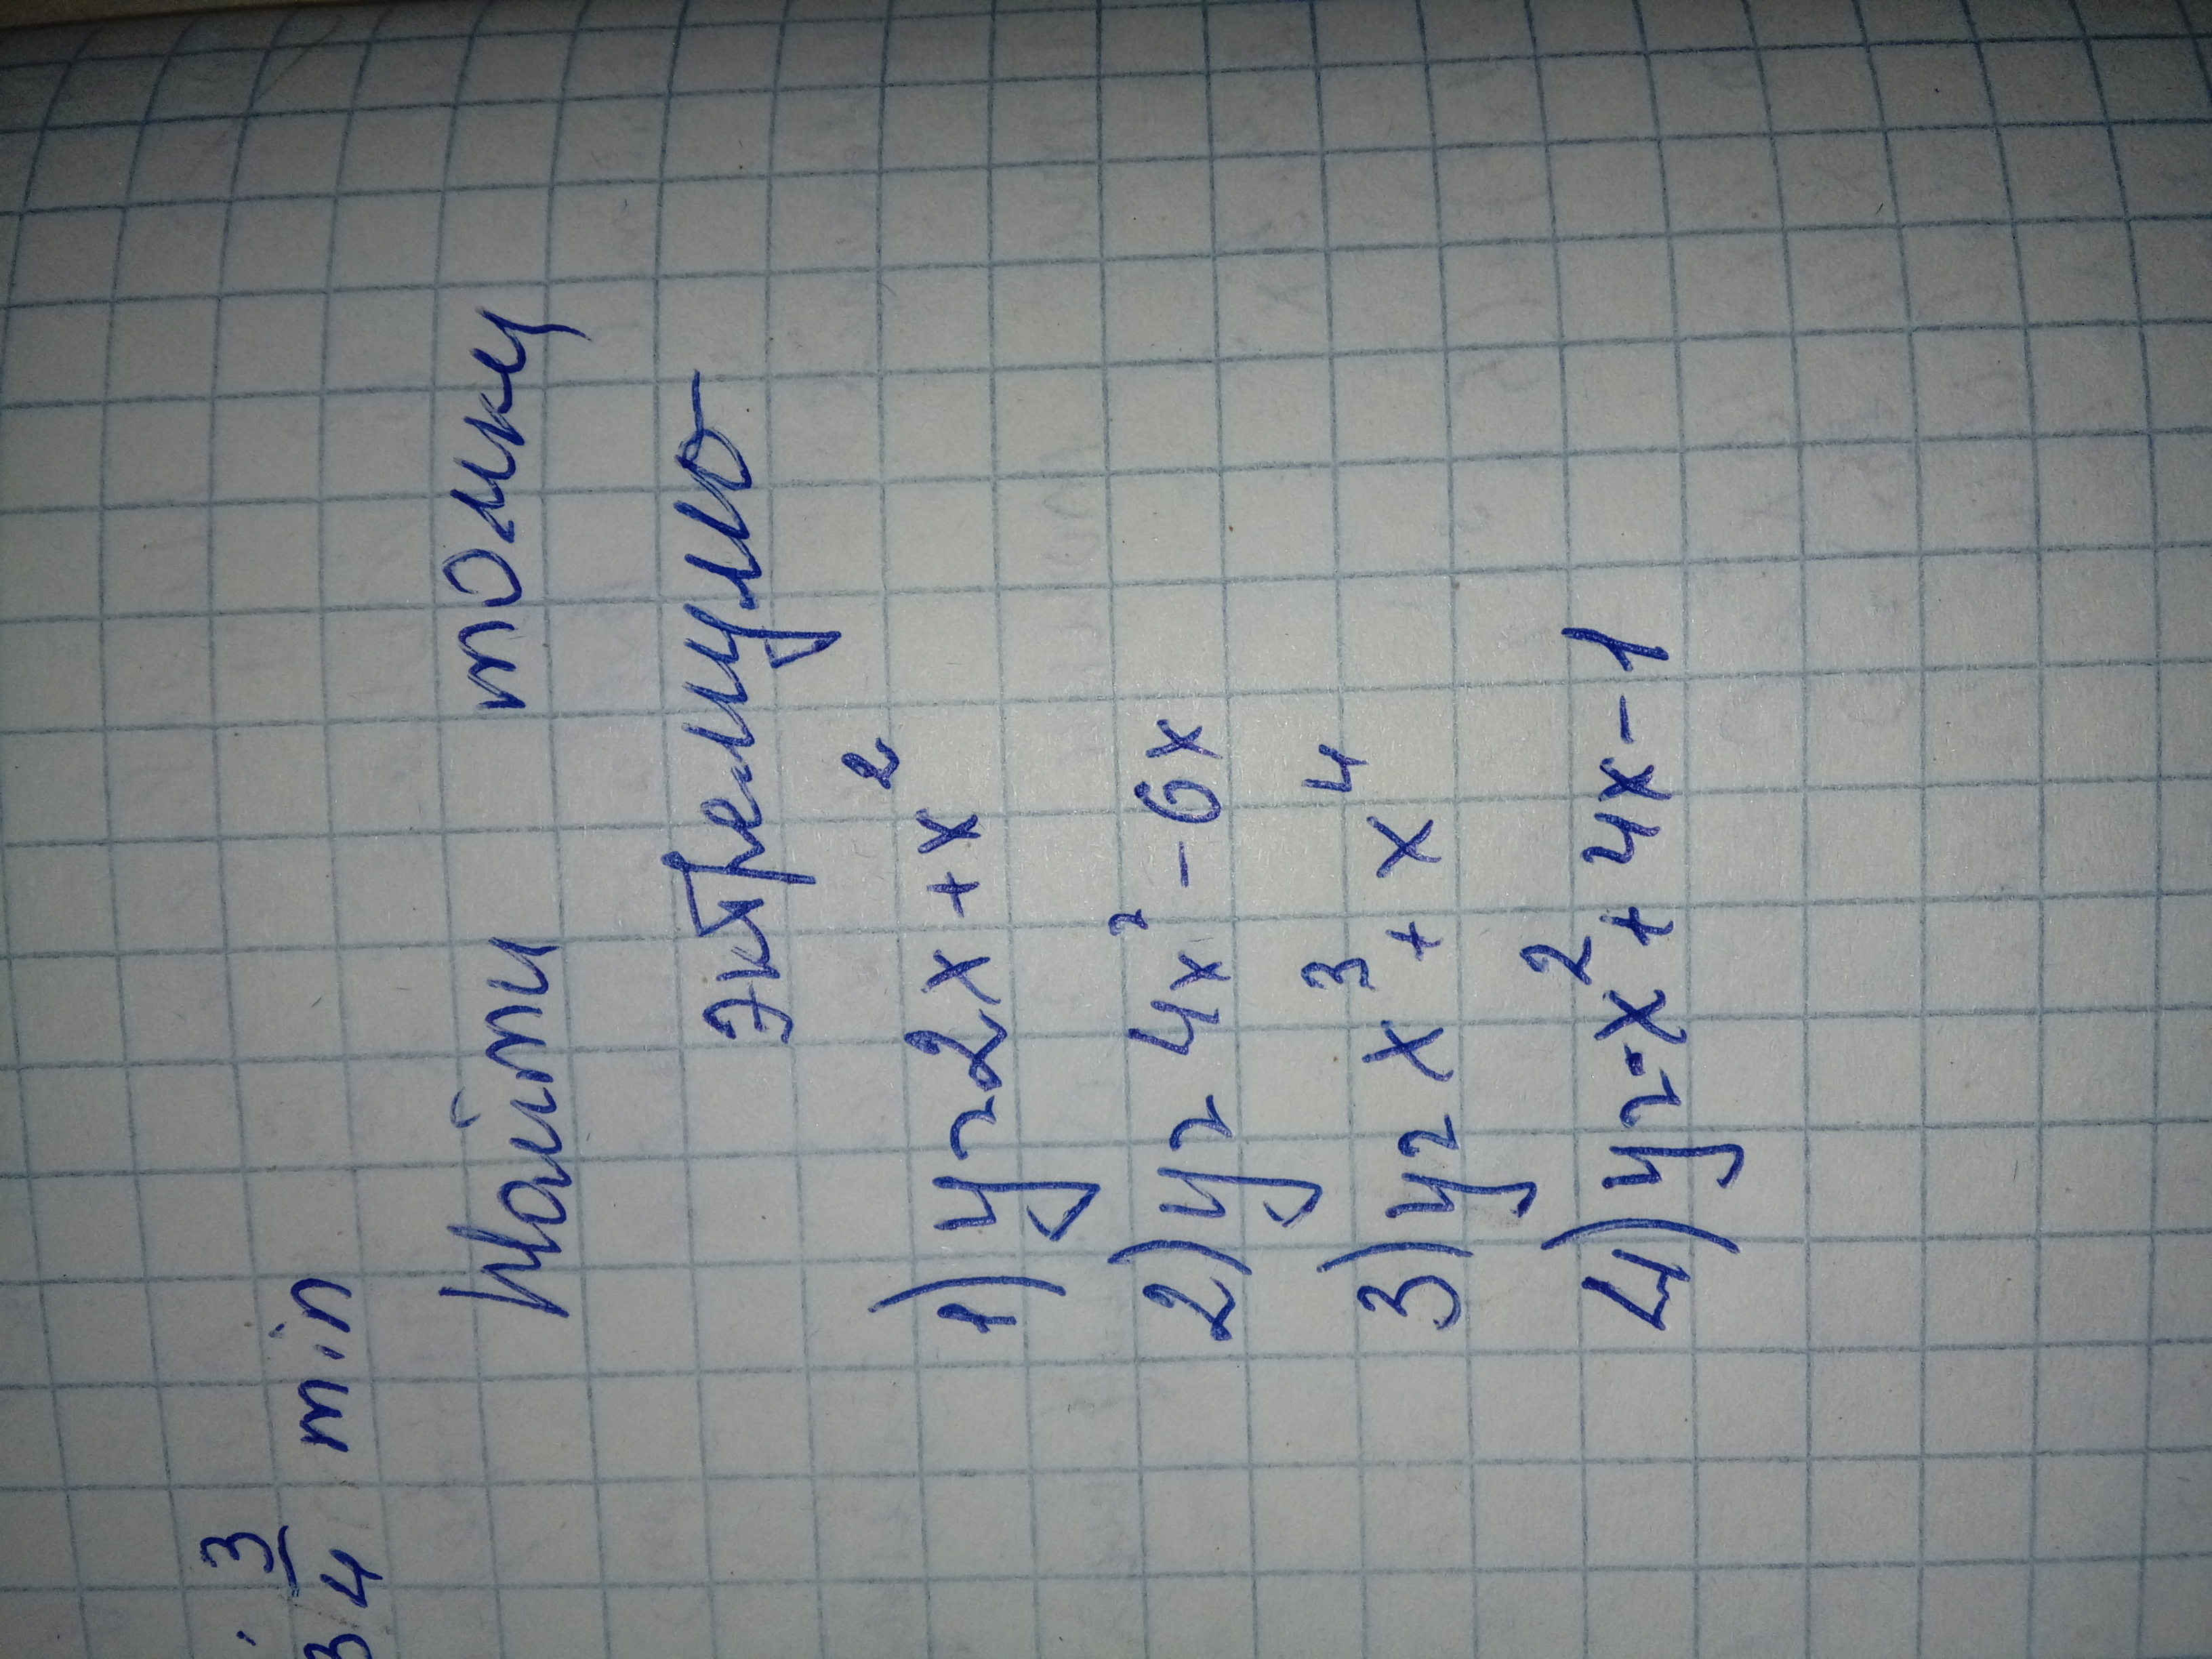 3 3/4 min
Найти точку
экстремумо
1) y = 2x + x²
2) y = 4x² - 6x
3) y = x³ + x⁴
4) y = -x² + 4x - 1